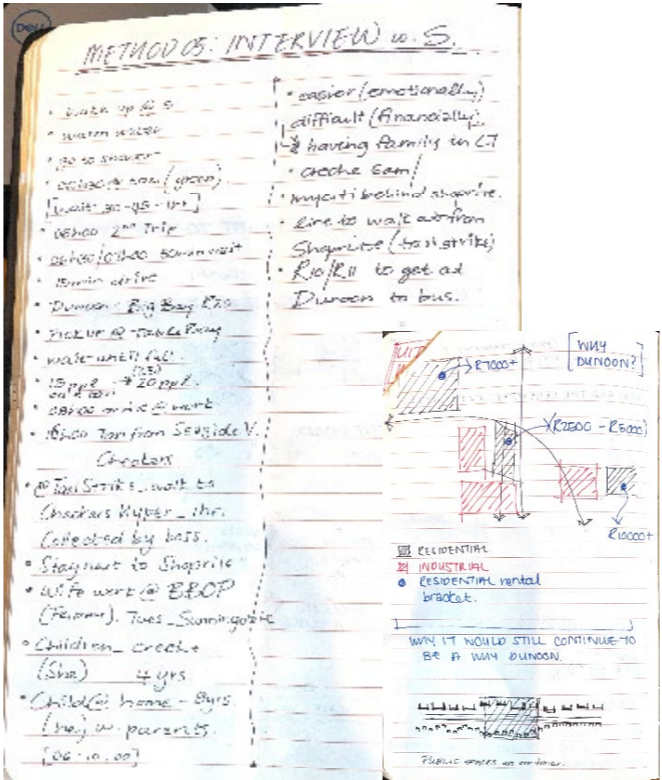 DELL
METHOD 05: INTERVIEW w. S.
• wake up @ 5
• warm water
• go to shower
• @ 5am (green)
[wait: 30-45-1hr]
• 06h00 2nd Trip
• 06h30/07h00 wait
• 15min drive
• Dunoon - Big Bay R20
• PICK UP @ Table Bay
• wait until full.
• 15 ppl. → 20 ppl.
• 08h00 arrive @ work
• 16h00 Taxi from Seaside V.
Checkers
• @ Taxi Strike_ walk to
Checkers Hyper_ 1hr.
Collected by boss.
• Stay next to Shoprite
• Wife work @
Tues_ Sunningdale
• Children_ creche
(She) 4 yrs.
• Child @ home - 8yrs.
(he) w. parents.
[06.10.00]
• easier (emotionally)
difficult (financially)
↳ having family in CT
• creche 6am/
• myciti behind shoprite.
• line to wait at from
Shoprite (taxi strike)
• R10/R11 to get at
Dunoon to bus.
[WHY
DUNOON?]
R7000+
(R2500 - R5000)
R10000+
RESIDENTIAL
INDUSTRIAL
RESIDENTIAL rental
bracket.
WHY IT WOULD STILL CONTINUE TO
BE A WHY DUNOON.
PUBLIC SPACES as container.